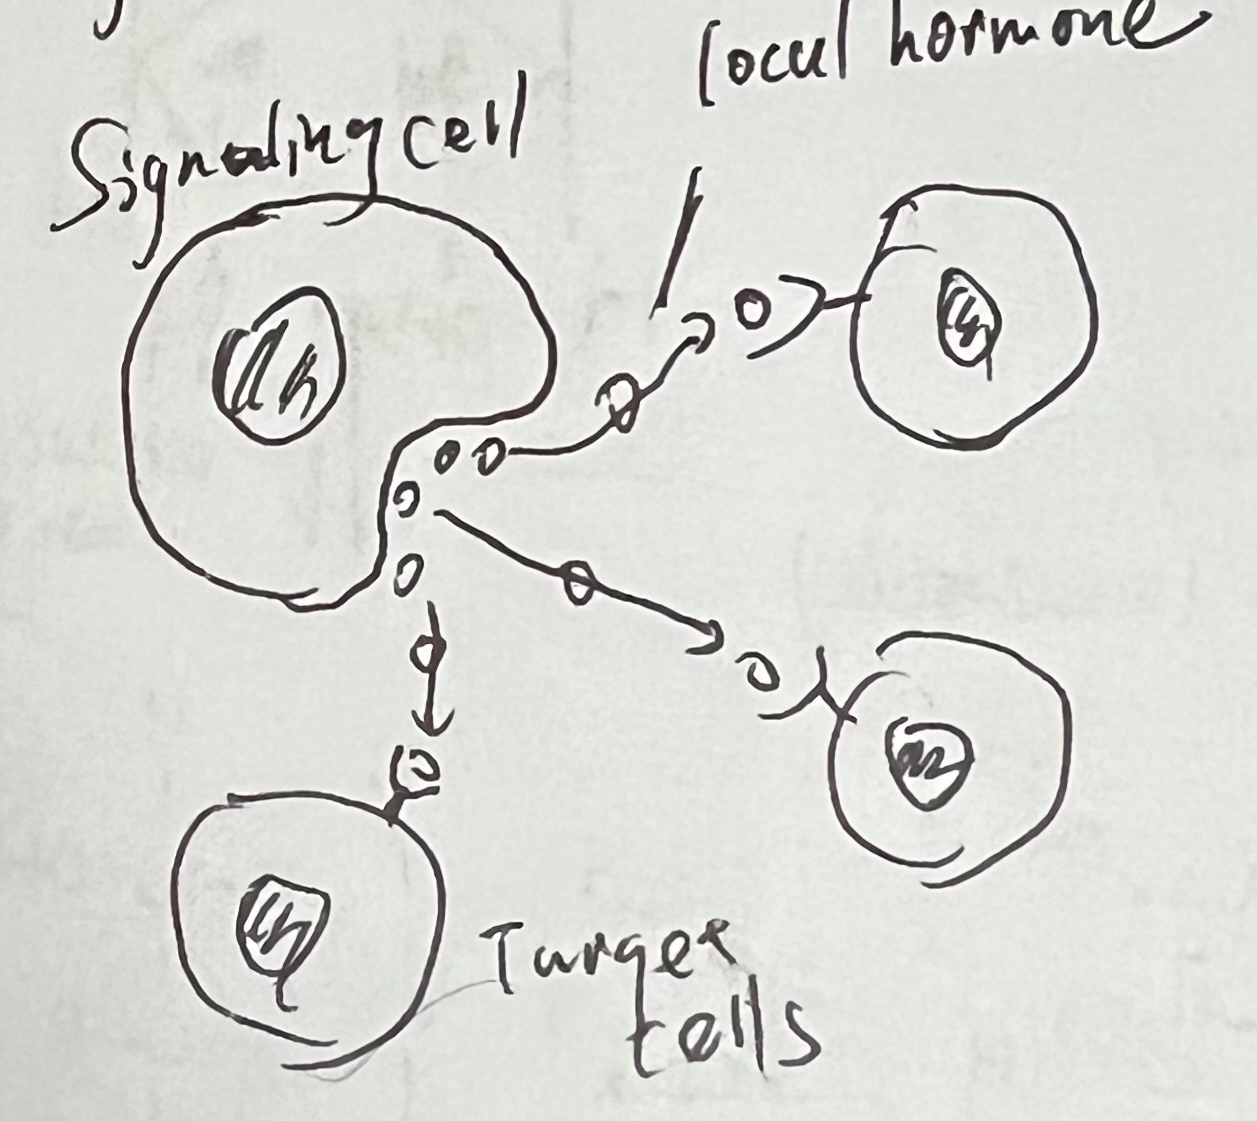 local hormone
Signaling cell
Target
cells